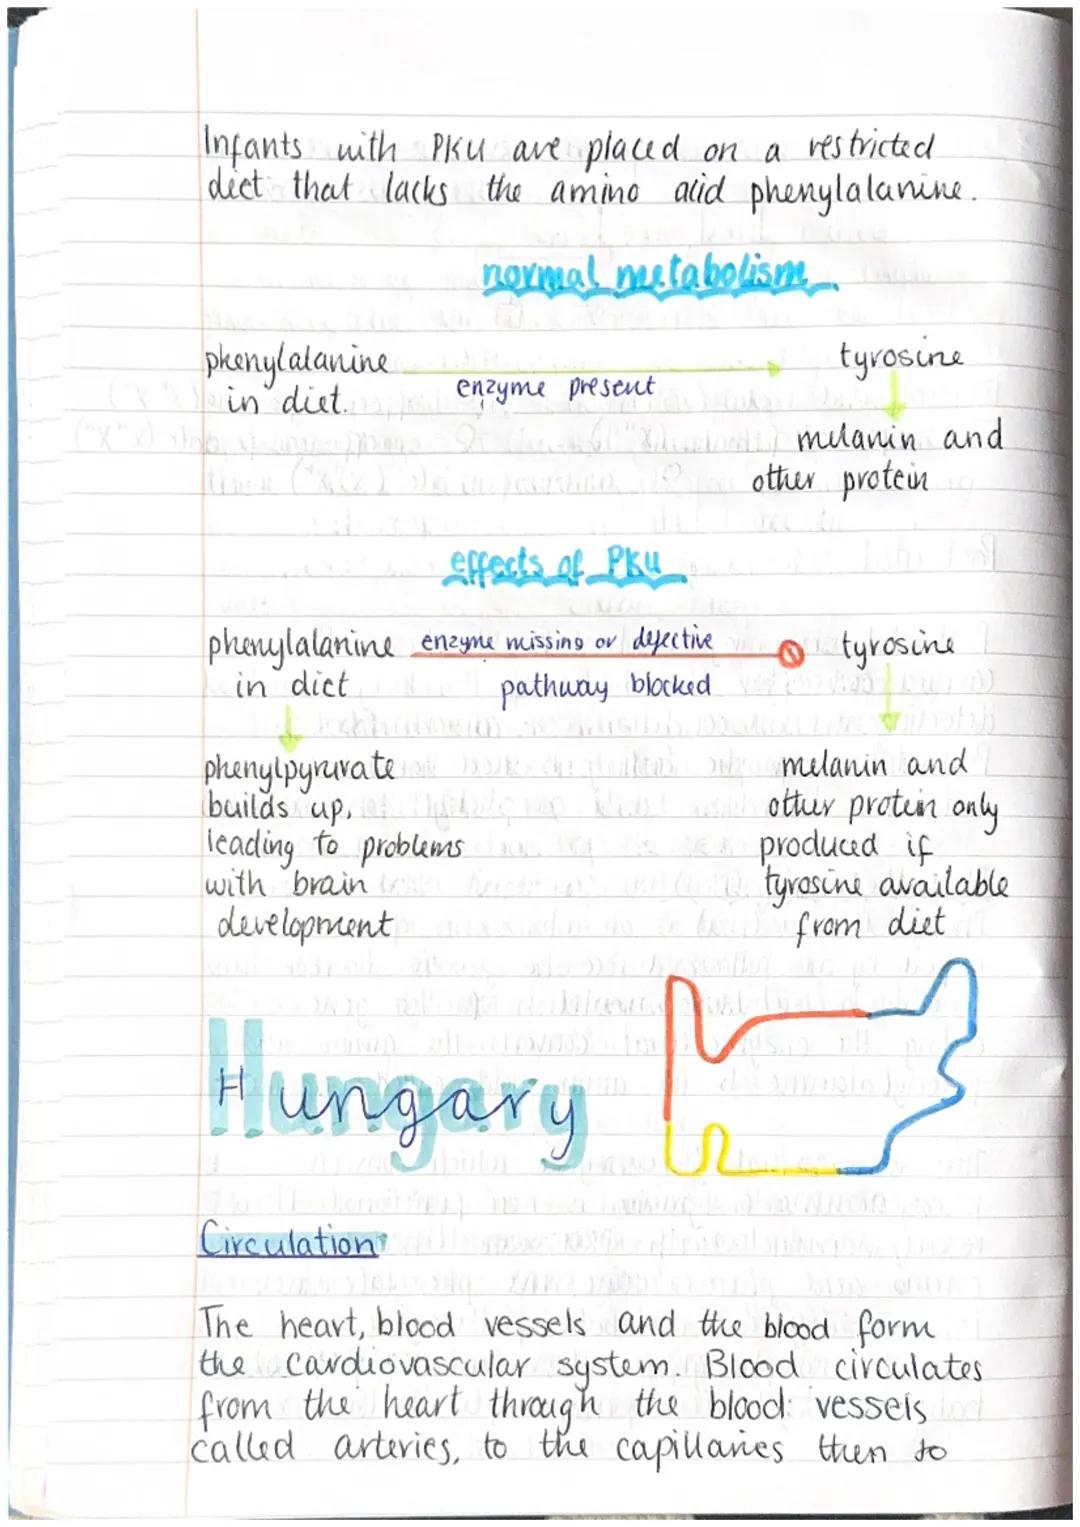 Infants with PKU are placed on a restricted
diet that lacks the amino acid phenylalanine.
normal metabolism
phenylalanine
in diet.
enzyme present
tyrosine
melanin and
other protein
effects of PKU
phenylalanine
in diet
enzyme missing or defective
pathway blocked
tyrosine
phenylpyruvate
builds up,
leading to problems
with brain
development
melanin and
other protein only
produced if
tyrosine available
from diet
Hungary
Circulation
The heart, blood vessels and the blood form
the cardiovascular system. Blood circulates
from the heart through the blood vessels
called arteries, to the capillaries then to